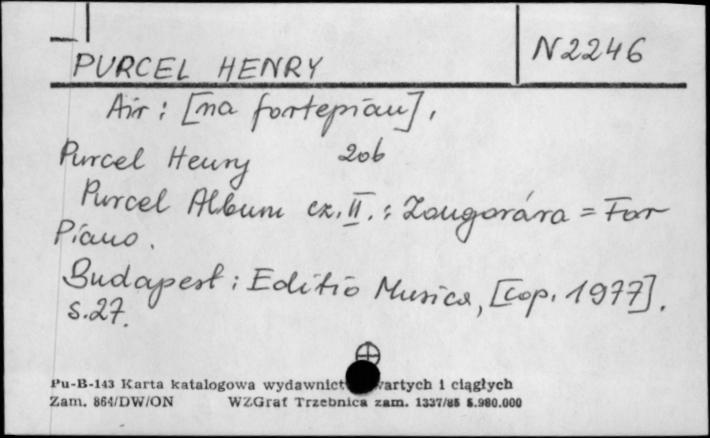 PURCEL HENRY
N2246
Air : [na fortepian],
Purcel Henry 20b
Purcel Album cz. II. : Zongorára = For
Piano.
Budapest : Editio Musica, [cop. 1977].
s.27.
Pu-B-143 Karta katalogowa wydawnict wartych i ciągłych
Zam. 864/DW/ON WZGraf Trzebnica zam. 1337/85 5.980.000